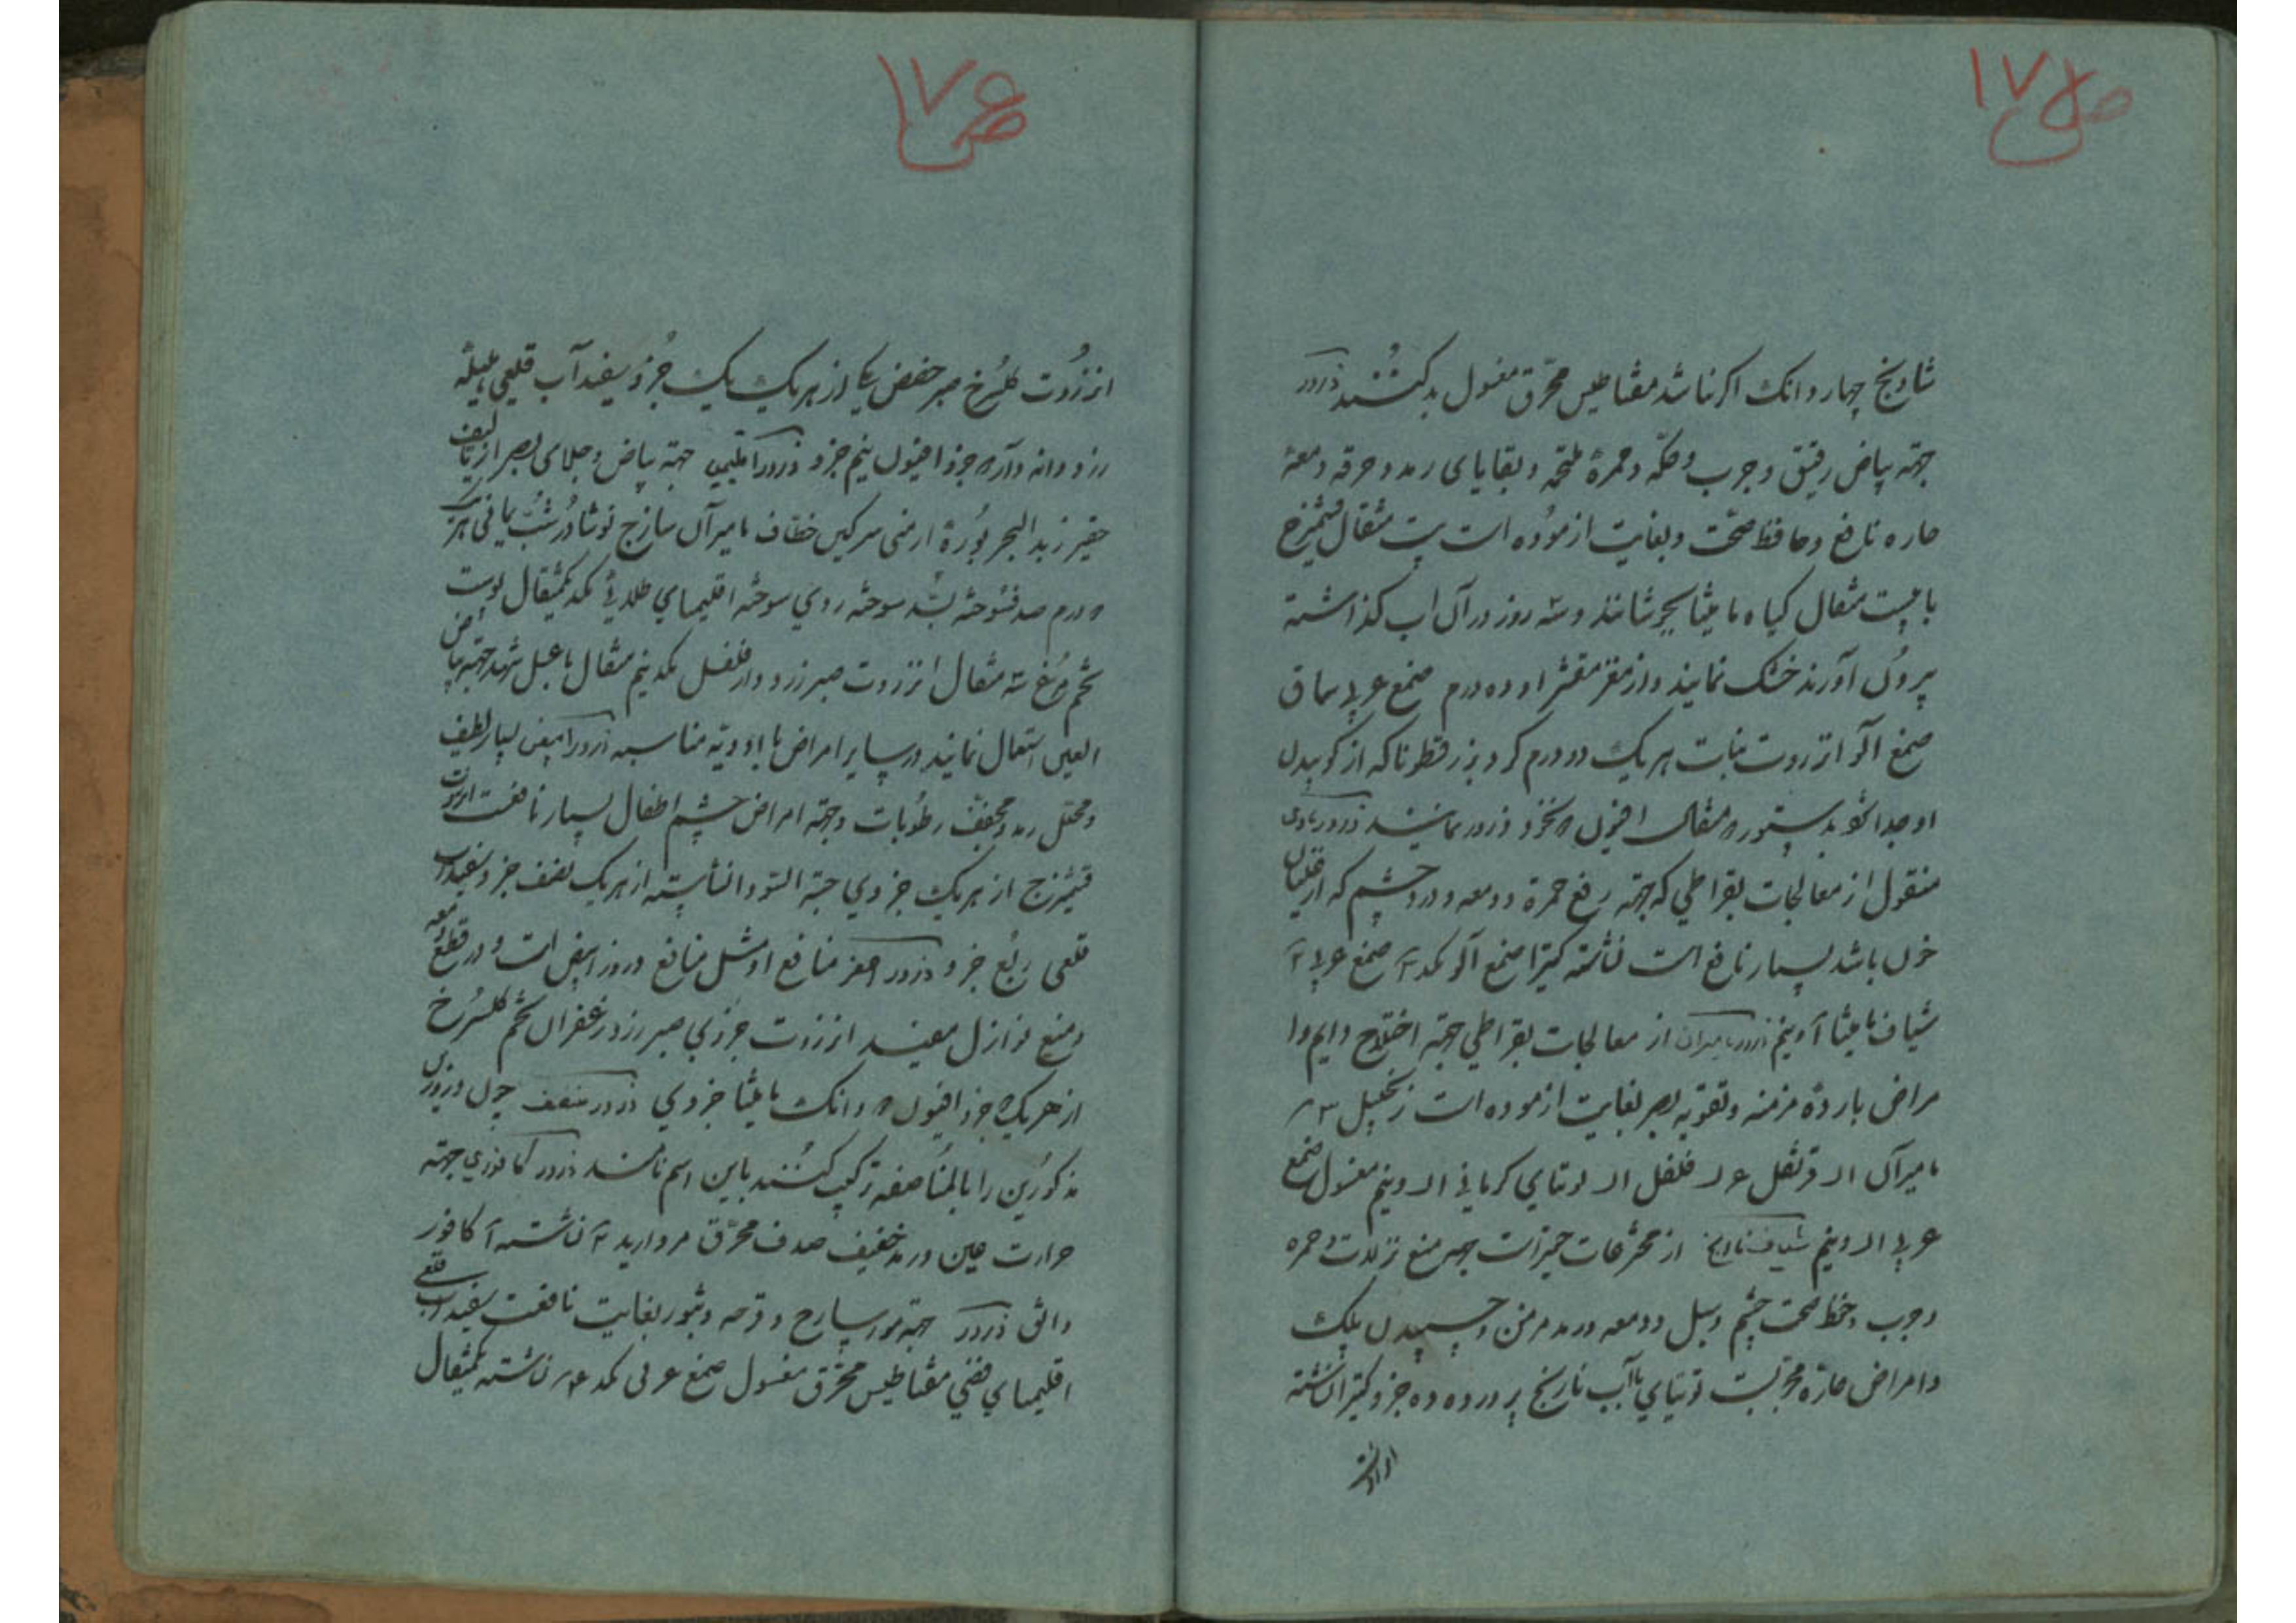 ص ۱۷۵
شادنج چهار دانک اکر نباشد مقناطیس محرّق مغسول بدل کنند ذرور
جهته بیاض رقیق و جرب و حکّه و حمرة ملتحمه و بقایای رمد و حرقه و دمعه
حاره نافع و حافظ صحّت و بغایت ازموده است بیست مثقال قشمیزج
با بیست مثقال کیاه مامیثا بجوشانند و سه روز در آن اب کذاشته
بیرون آورند خشک نمایند و از مغز مقشر او ده درم صمغ عربی سماق
صمغ آلو انزروت نبات هر یک دو درم کرد بزرقطونا که از کوبیدن
او جدا شود بدستور مثقال افیون ذرور نمایند ذرور
منقول از معالجات بقراطی که جهته رفع حمرة و دمعه و درد چشم که از غلیان
خون باشد بسیار نافع است نشاسته کتیرا صمغ آلو صمغ عربی
شیاف مامیثا ونیم ذرور مامیران از معالجات بقراطی جهته اختلاج دایم و ا
مراض بارده مزمنه و تقویه بصر بغایت ازموده است زنجبیل ۳
مامیران قرنفل فلفل توتیای کرمانی ونیم مغسول صمغ
عربی ونیم شیاف نارنج از مخترعات حقیر است جهته منع نزلات و حمره
و جرب و حفظ صحت چشم و سبل و دمعه و رمد مزمن و چسبیدن پلک
و امراض حارّه مجربست توتیای باآب نارنج پرورده ده جزو کتیرا نشاسته
ص ۱۷۶
انزروت کلسُرخ صبر حضض مکی از هر یک یک جُزو سفیدآب قلعی هلیله
زرد دانه جزو افیون نیم جزو ذرور جهته بیاض و جلای بصر از تالیف
حقیر زبدالبحر بُورۀ ارمنی سرکین خطّاف مامیران ساذج نوشادر شبّ یمانی هر یک
درم صدف سوخته بسّد سوخته روی سوخته اقلیمیای طلائی یکمثقال پوست
تخم مرُغ سه مثقال انزروت صبر زرد دارفلفل نیم مثقال با عسل شهد جهته بیاض
العین استعمال نمایند در سایر امراض با ادویّه مناسبه ذرور ابیض بسیار لطیف
و محلل رمد و مجفّف رطُوبات و جهته امراض چشم اطفال بسیار نافعست انزروت
قشمیزج از هر یک جزوی حبة السّودا نشاسته از هر یک نصف جزو سفیداب
قلعی رُبع جزو ذرور اصفر منافع او مثل منافع ذرور ابیض است و در قطع دمعه
و منع نوازل مفید انزروت جزوی صبر زرد زعفران تخم کلسُرخ
از هر یک جزو افیون دانک مامیثا جزوی ذرور منصف چون ذرورین
مذکورُین را بالمنُاصفه ترکیب کنُند باین اسم نامند ذرور کافوری جهته
حرارت عین و رمد خفیف صدف محرّق مروارید نشاسته کافور
دانقی ذرور جهته مورسارج و قرحه و بثور بغایت نافعست سفیداب قلعی
اقلیمیای فضی مقناطیس محرق مغسول صمغ عربی نشاسته یکمثقال